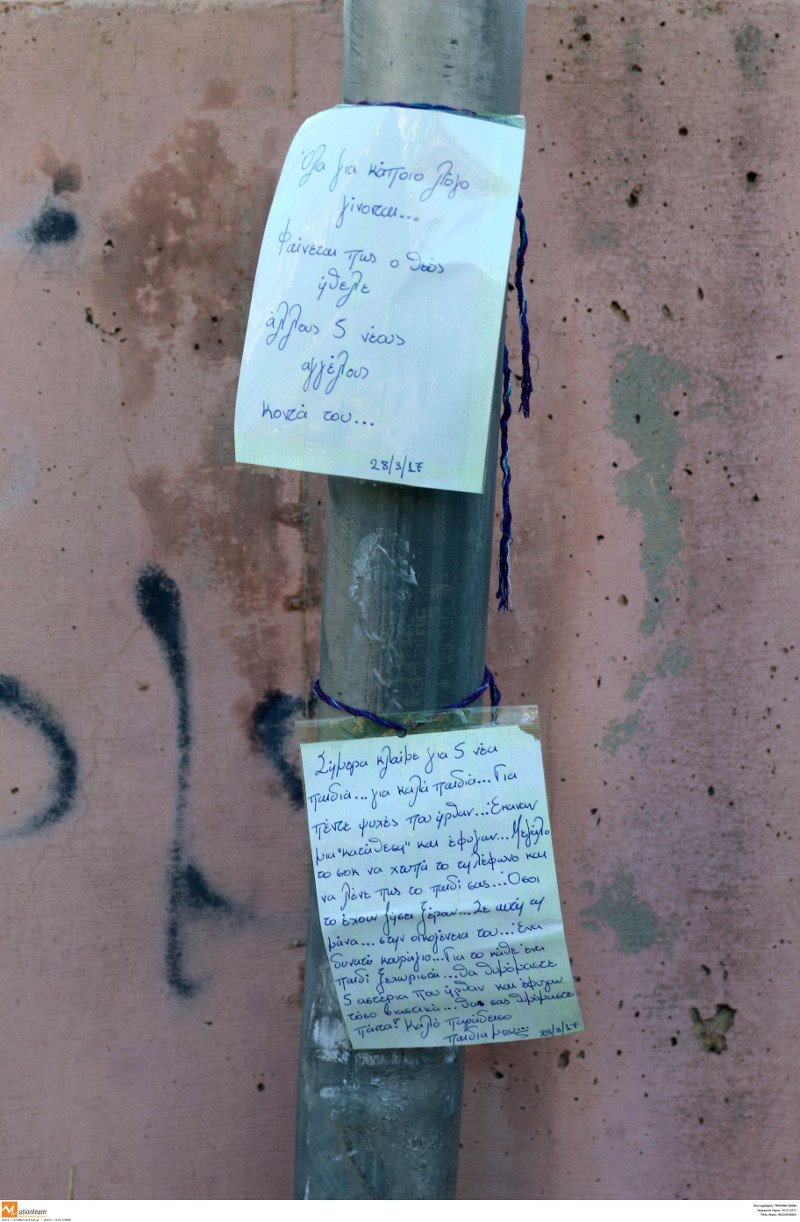 Όλα για κάποιο λόγο
γίνονται...
Φαίνεται πως ο θεός
ήθελε
άλλους 5 νέους
αγγέλους
κοντά του...
28/3/17
Σήμερα κλαίμε για 5 νέα
παιδιά...για καλά παιδιά...Για
πέντε ψυχές που ήρθαν...Έκαναν
μια "κατάθεση" και έφυγαν...Μεγάλο
το σοκ να χτυπά το τηλέφωνο και
να λένε πως το παιδί σας...Όσοι
το έχουν ζήσει ξέραν...Σε αυτή τη
μάνα...στην οικογένεια του...Ένα
δυνατό κουράγιο...Για το κάθε ένα
παιδί ξεχωριστά...θα θυμόμαστε
5 αστέρια που ήρθαν και έφυγαν
τόσο βιαστικά...Θα σας θυμόμαστε
πάντα! Καλό παράδεισο
παιδιά μου... 28/3/17
Motionteam